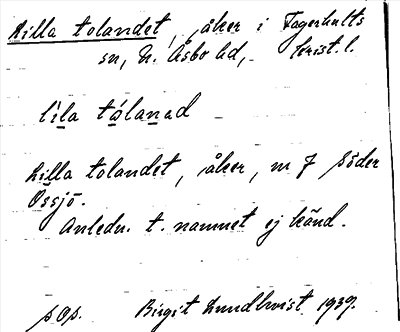 Lilla tolandet, åker i Fagerhults
sn, N. Åsbo hd, Krist. l.
lila tólanad
Lilla tolandet, åker, m 7 Söder
Össjö.
Anledn. t. namnet ej känd.
Birgit Lundkvist 1939.